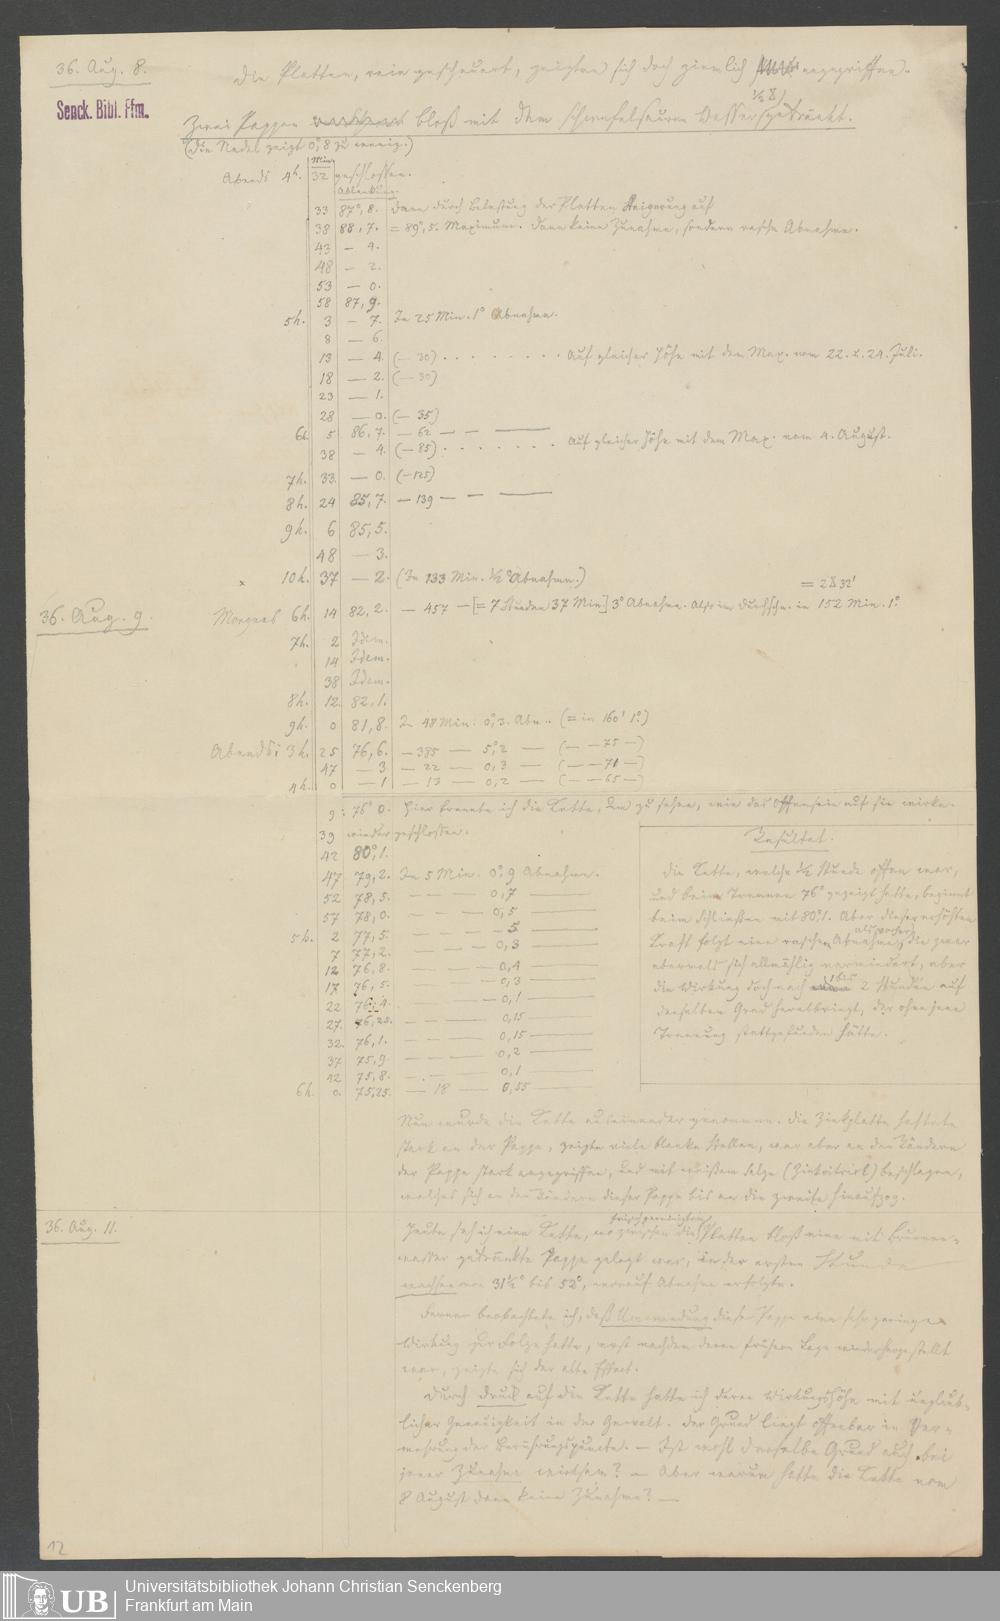 36. Aug. 8.
Die Platten, rein gescheuert, zeigten sich doch ziemlich angegriffen.
Senck. Bibl. Ffm.
Zwei Pappen bloß mit dem schwefelsauren Wasser getränkt.
(Die Nadel zeigt 0°,8 zu wenig.)
Min.
Abends 4h. 32 geschlossen.
Ablenkung.
33 87°,8. Dann durch Belastung der Platten Steigerung auf
38 88,7. = 89°,5. Maximum. Dann keine Zunahme, sondern rasche Abnahme.
43 — 4.
48 — 2.
53 — 0.
58 87,9.
5h. 3 — 7. In 25 Min. 1° Abnahme.
8 — 6.
13 — 4. (— 30) . . . . . . . . Auf gleicher Höhe mit dem Max. vom 22. u. 24. Juli.
18 — 2. (— 30)
23 — 1.
28 — 0. (— 35)
6h. 5 86,7. — 62 — — ——
38 — 4. (— 85) . . . . . . . Auf gleicher Höhe mit dem Max. vom 4. August.
7h. 33. — 0. (—125)
8h. 24 85,7. — 139 — — ——
9h. 6 85,5.
48 — 3.
10h. 37 — 2. (In 133 Min. ½° Abnahme.)
36. Aug. 9. Morgens 6h. 14 82,2. — 457 — [= 7 Stunden 37 Min.] 3° Abnahme. Also im Durchschn. in 152 Min. 1°.
7h. 2 Idem.
14 Idem.
38 Idem.
8h. 12. 82,1.
9h. 0 81,8. In 48 Min. 0°,3. Abn.. (= in 160' 1°.)
Abends: 3h. 25 76,6. — 385 — 5°,2 — (— — 75 —)
47 — 3 — 22 — 0,3 — (— — 71 —)
4h. 0 — 1 — 13 — 0,2 — (— — 65 —)
9: 76° 0. Hier trennte ich die Kette, um zu sehen, wie das Offensein auf sie wirke.
39 wieder geschlossen.
42 80°,1.
47 79,2. In 5 Min. 0°,9 Abnahme.
52 78,5. — — — 0,7 ——
57 78,0. — — — 0,5 ——
5h. 2 77,5. — — — — 5 ——
7 77,2. — — — 0,3 ——
12 76,8. — — — 0,4 ——
17 76,5. — — — 0,3 ——
22 76,4. — — — 0,1 ——
27. 76,25. — — — 0,15 ——
32. 76,1. — — — 0,15 ——
37 75,9. — — — 0,2 ——
42 75,8. — — — 0,1 ——
6h. 0. 75,25. — 18 — 0,55 ——
Resultat.
Die Kette, welche ½ Stunde offen war,
und beim Trennen 76° gezeigt hatte, beginnt
beim Schließen mit 80°,1. Aber dieser erhöhten
Kraft folgt eine raschere Abnahme als vorher, die zwar
abermals sich allmählig vermindert, aber
die Wirkung doch nach 1 bis 2 Stunden auf
denselben Grad herabbringt, der ohne jene
Trennung stattgefunden hätte.
Nun wurde die Kette auseinander genommen. Die Zinkplatte haftete
stark an der Pappe, zeigte viele blanke Stellen, war aber an den Rändern
der Pappe stark angegriffen, und mit weißem Salze (Zinkvitriol) beschlagen,
welches sich an den Rändern dieser Pappe bis an die zweite hinaufzog.
36. Aug. 11.
Heute sah ich eine Kette, wo zwischen die frisch gereinigten Platten bloß eine mit Brunnen-
wasser getränkte Pappe gelegt war, in der ersten Stunde
wachsen von 31½° bis 52°, worauf Abnahme erfolgte.
Ferner beobachtete ich, daß Umwendung dieser Pappe eine sehr geringe
Wirkung zur Folge hatte, erst nachdem deren frühere Lage wiederhergestellt
war, zeigte sich der alte Effect.
Durch Druck auf die Kette hatte ich deren Wirkungshöhe mit unglaub-
licher Genauigkeit in der Gewalt. Der Grund liegt offenbar in Ver-
mehrung der Berührungspuncte. — Ist wohl derselbe Grund auch bei
jener Zunahme wirksam? — Aber warum hatte die Kette vom
8 August dann keine Zunahme? —
12
UB Universitätsbibliothek Johann Christian Senckenberg
Frankfurt am Main